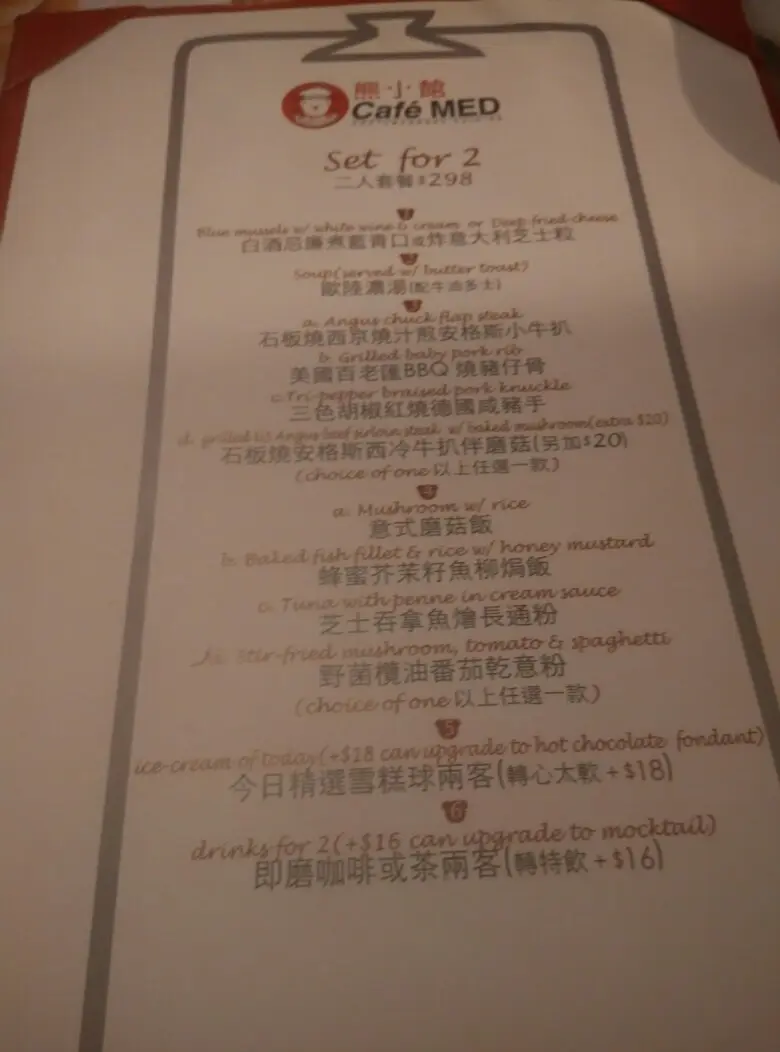 熊小館
Café MED
Set for 2
二人套餐$298
1
Blue mussels w/ white wine & cream or Deep fried cheese
白酒忌廉煮藍青口或炸意大利芝士粒
2
Soup(served w/ butter toast)
歐陸濃湯(配牛油多士)
3
a. Angus chuck flap steak
石板燒西京燒汁煎安格斯小牛扒
b. Grilled baby pork rib
美國百老匯BBQ 燒豬仔骨
c. Tri-pepper braised pork knuckle
三色胡椒紅燒德國咸豬手
d. grilled US Angus beef sirloin steak w/ baked mushroom(extra $20)
石板燒安格斯西冷牛扒伴磨菇(另加$20)
(choice of one 以上任選一款)
4
a. Mushroom w/ rice
意式磨菇飯
b. Baked fish fillet & rice w/ honey mustard
蜂蜜芥茉籽魚柳焗飯
c. Tuna with penne in cream sauce
芝士吞拿魚燴長通粉
Stir-fried mushroom, tomato & spaghetti
野菌欖油番茄乾意粉
(choice of one 以上任選一款)
5
ice-cream of today(+$18 can upgrade to hot chocolate fondant)
今日精選雪糕球兩客(轉心太軟+$18)
6
drinks for 2(+$16 can upgrade to mocktail)
即磨咖啡或茶兩客(轉特飲+$16)